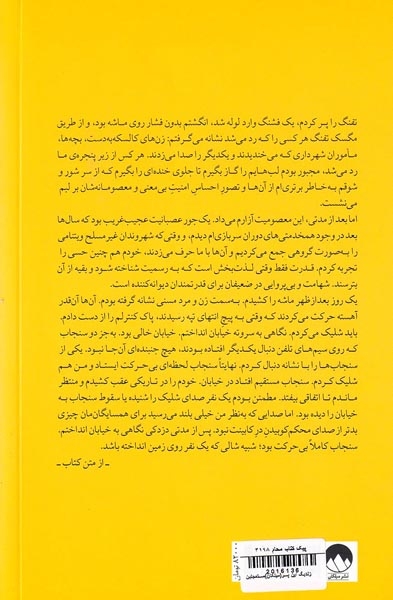 تفنگ را پر کردم، یک فشنگ وارد لوله شد، انگشتم بدون فشار روی ماشه بود، و از طریق
مگسک تفنگ هر کسی را که رد می‌شد نشانه می‌گرفتم: زن‌های کالسکه‌به‌دست، بچه‌ها،
مأموران شهرداری که می‌خندیدند و یکدیگر را صدا می‌زدند. هر کس از زیر پنجره‌ی ما
رد می‌شد، مجبور بودم لب‌هایم را گاز بگیرم تا جلوی خنده‌ای را بگیرم که از سر شور و
شوقم به‌خاطر برتری‌ام از آن‌ها و تصورِ احساس امنیتِ بی‌معنی و معصومانه‌شان بر لبم
می‌نشست.
اما بعد از مدتی، این معصومیت آزارم می‌داد. یک‌جور عصبانیت عجیب‌غریب بود که سال‌ها
بعد در وجود هم‌خدمتی‌های دوران سربازی‌ام دیدم، و وقتی که شهروندان غیرمسلح ویتنامی
را به‌صورت گروهی جمع می‌کردیم و آن‌ها با ما حرف می‌زدند، خودم هم چنین حسی را
تجربه کردم. قدرت فقط وقتی لذت‌بخش است که به رسمیت شناخته شود و بقیه از آن
بترسند. شهامت و بی‌پروایی در ضعیفان برای قدرتمندان دیوانه‌کننده است.
یک روز بعدازظهر ماشه را کشیدم. به‌سمت زن و مرد مسنی نشانه گرفته بودم. آن‌ها آن‌قدر
آهسته حرکت می‌کردند که وقتی به پیچ انتهای تپه رسیدند، پاک کنترلم را از دست دادم.
باید شلیک می‌کردم. نگاهی به سروته خیابان انداختم. خیابان خالی بود. به‌جز دو سنجاب
که روی سیم‌های تلفن دنبال یکدیگر افتاده بودند، هیچ جنبنده‌ای آن‌جا نبود. یکی از
سنجاب‌ها را با نشانه دنبال کردم. نهایتاً سنجاب لحظه‌ای بی‌حرکت ایستاد و من هم
شلیک کردم. سنجاب مستقیم افتاد در خیابان. خودم را در تاریکی عقب کشیدم و منتظر
ماندم تا اتفاقی بیفتد. مطمئن بودم یک نفر صدای شلیک را شنیده یا سقوط سنجاب به
خیابان را دیده بود. اما صدایی که به‌نظر من خیلی بلند می‌رسید برای همسایگان‌مان چیزی
بدتر از صدای محکم‌کوبیدنِ درِ کابینت نبود. پس از مدتی دزدکی نگاهی به خیابان انداختم.
سنجاب کاملاً بی‌حرکت بود؛ شبیه شالی که یک نفر روی زمین انداخته باشد.
ـ از متن کتاب ـ
پیک کتاب مجاز ۳۱۹۸
2016136
۸۲۰۰۰ تومان
نشر میلکان